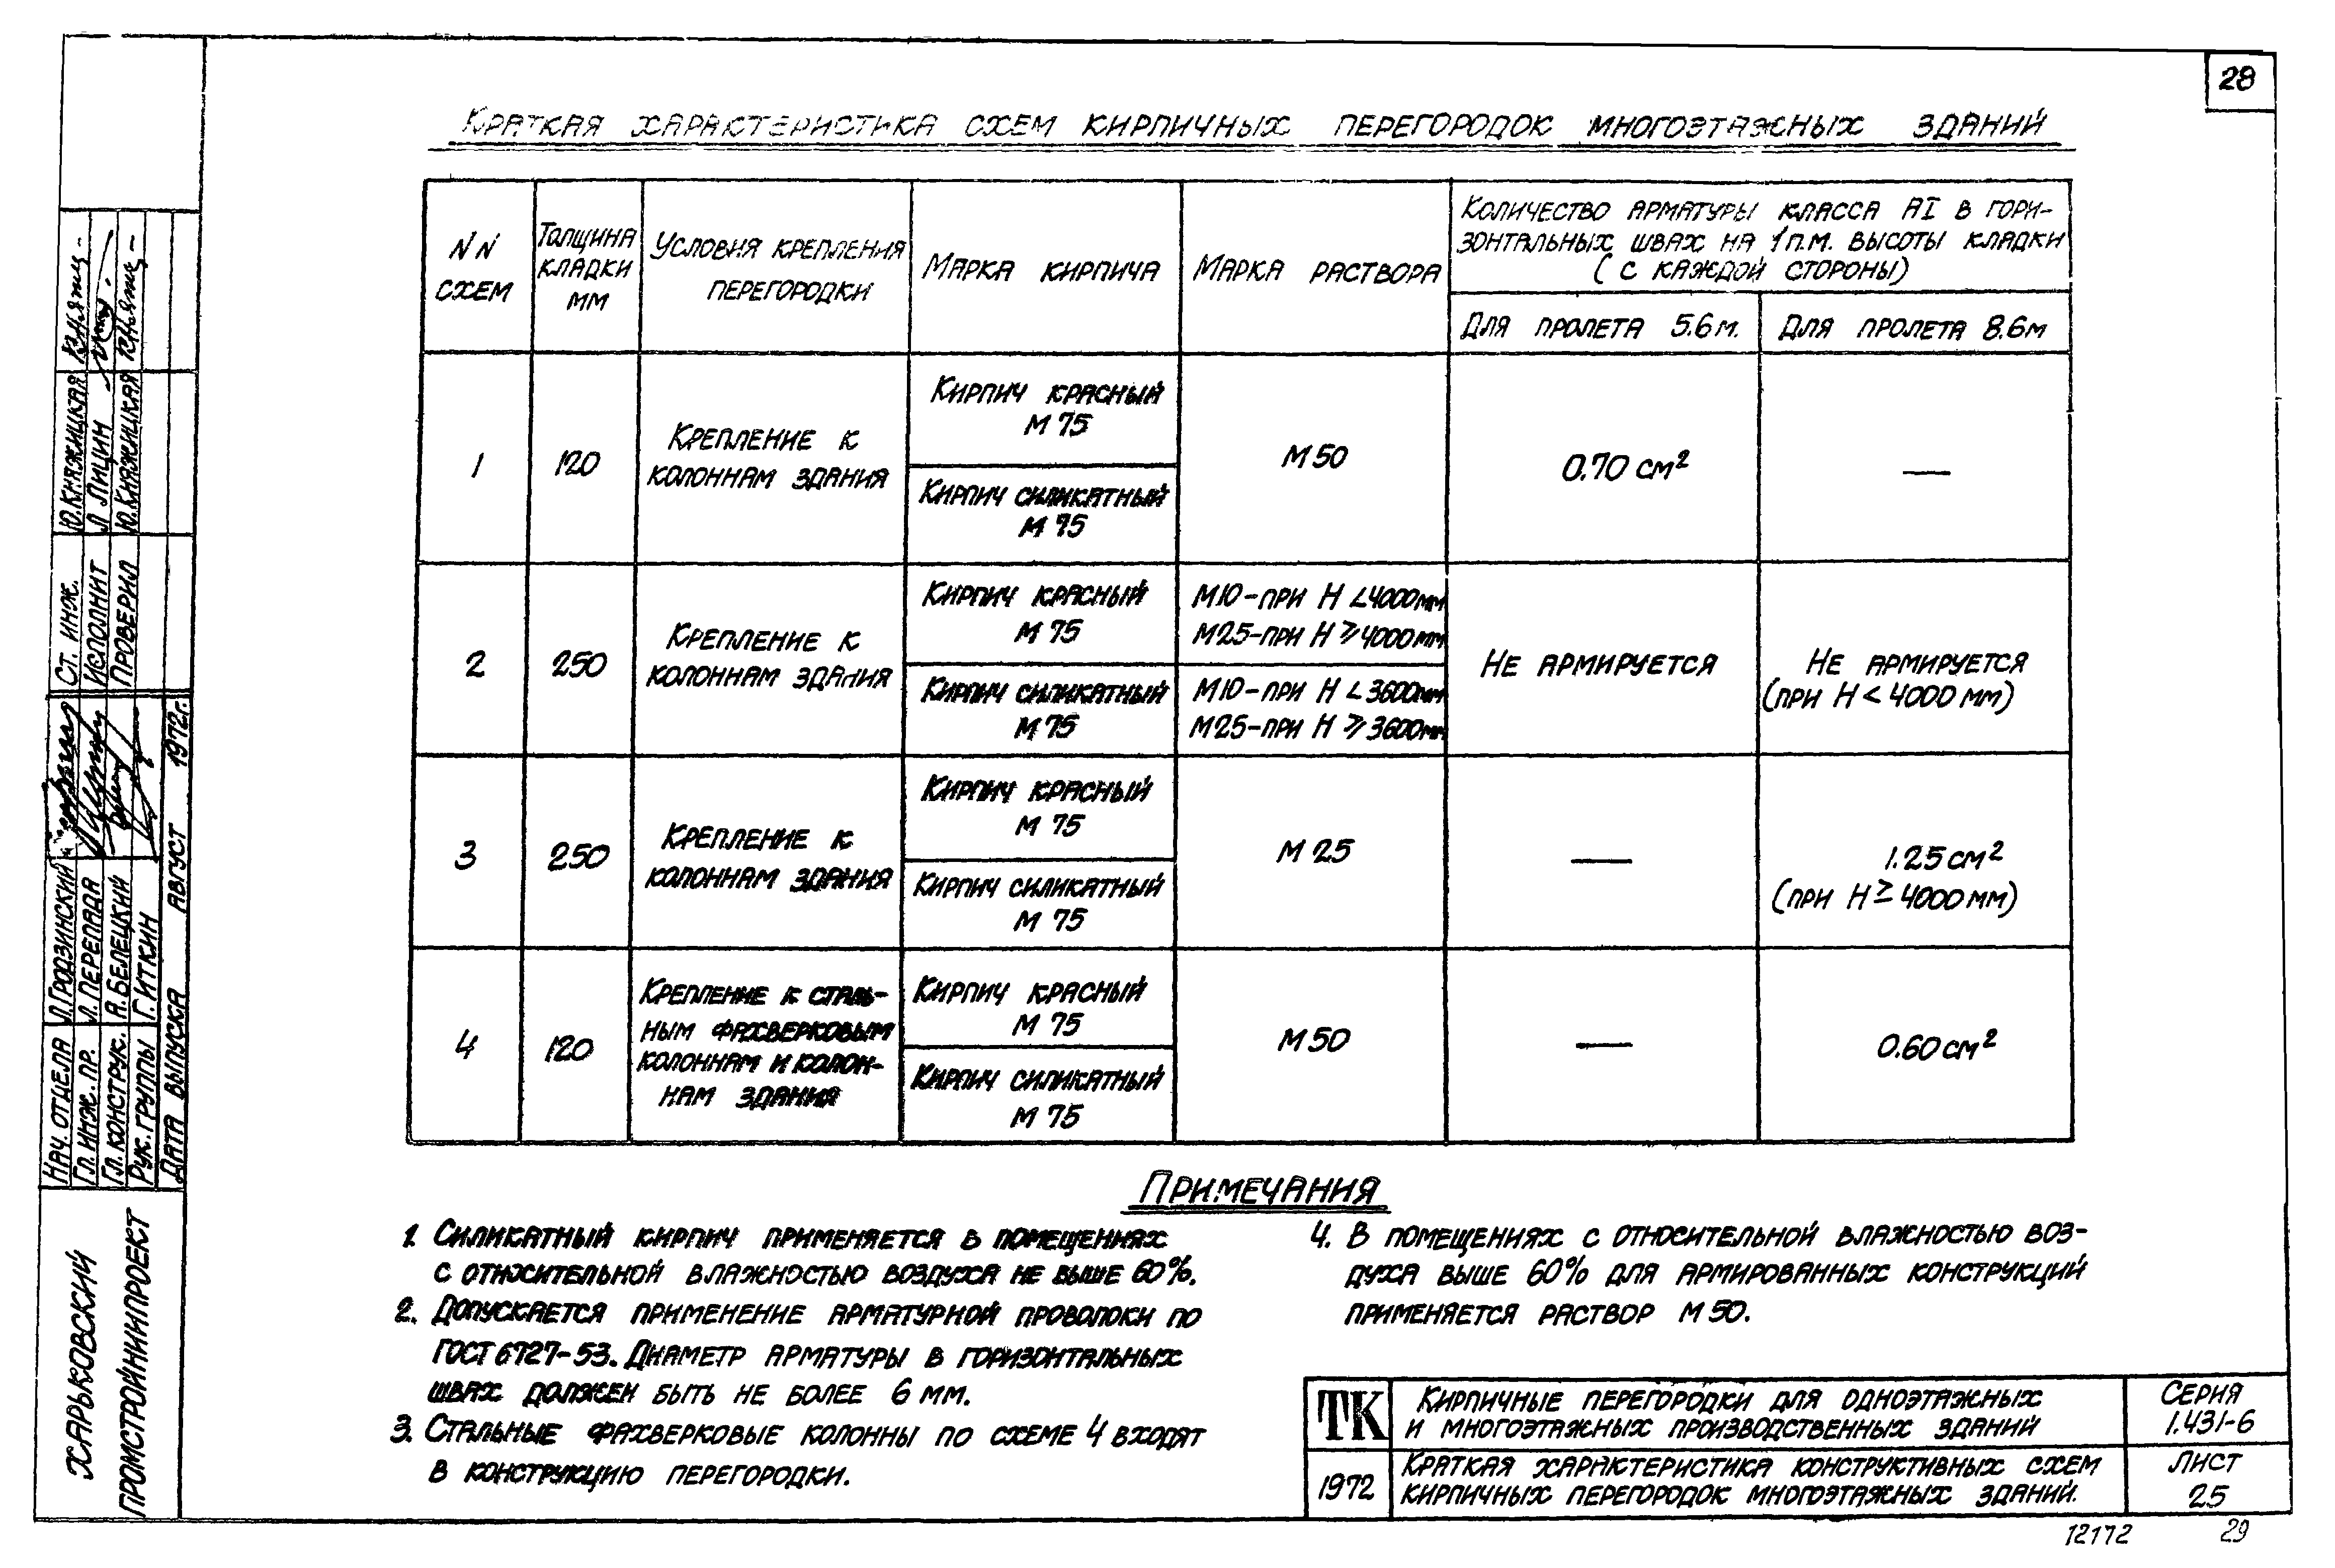 28
Краткая характеристика схем кирпичных перегородок многоэтажных зданий
NN
схем
Толщина
кладки
мм
Условия крепления
перегородки
Марка кирпича
Марка раствора
Количество арматуры класса АI в гори-
зонтальных швах на 1п.м. высоты кладки
(с каждой стороны)
Для пролета 5.6м.
Для пролета 8.6м
1
120
Крепление к
колоннам здания
Кирпич красный
М 75
Кирпич силикатный
М 75
М 50
0.70 см²
—
2
250
Крепление к
колоннам здания
Кирпич красный
М 75
Кирпич силикатный
М 75
М10-при Н <4000мм
М25-при Н ⩾4000мм
М10-при Н <3600мм
М25-при Н ⩾3600мм
Не армируется
Не армируется
(при Н < 4000 мм)
3
250
Крепление к
колоннам здания
Кирпич красный
М 75
Кирпич силикатный
М 75
М 25
—
1.25 см²
(при Н ≥ 4000 мм)
4
120
Крепление к сталь-
ным фахверковым
колоннам и колон-
нам здания
Кирпич красный
М 75
Кирпич силикатный
М 75
М 50
—
0.60 см²
Примечания
1. Силикатный кирпич применяется в помещениях
с относительной влажностью воздуха не выше 60%.
2. Допускается применение арматурной проволоки по
ГОСТ 6727-53. Диаметр арматуры в горизонтальных
швах должен быть не более 6 мм.
3. Стальные фахверковые колонны по схеме 4 входят
в конструкцию перегородки.
4. В помещениях с относительной влажностью воз-
духа выше 60% для армированных конструкций
применяется раствор М 50.
ТК
Кирпичные перегородки для одноэтажных
и многоэтажных производственных зданий
Серия
1.431-6
1972
Краткая характеристика конструктивных схем
кирпичных перегородок многоэтажных зданий.
Лист
25
12172
29
Харьковский
Промстройниипроект
Нач. отдела Л.Гродзинский
Гл. инж. пр. Л. Перепада
Гл. конструк. А. Белецкий
Рук. группы Г. Иткин
Дата выпуска август 1972г.
Ст. инж. Ю.Княжицкая
Исполнит Л Лицин
Проверил Ю.Княжицкая